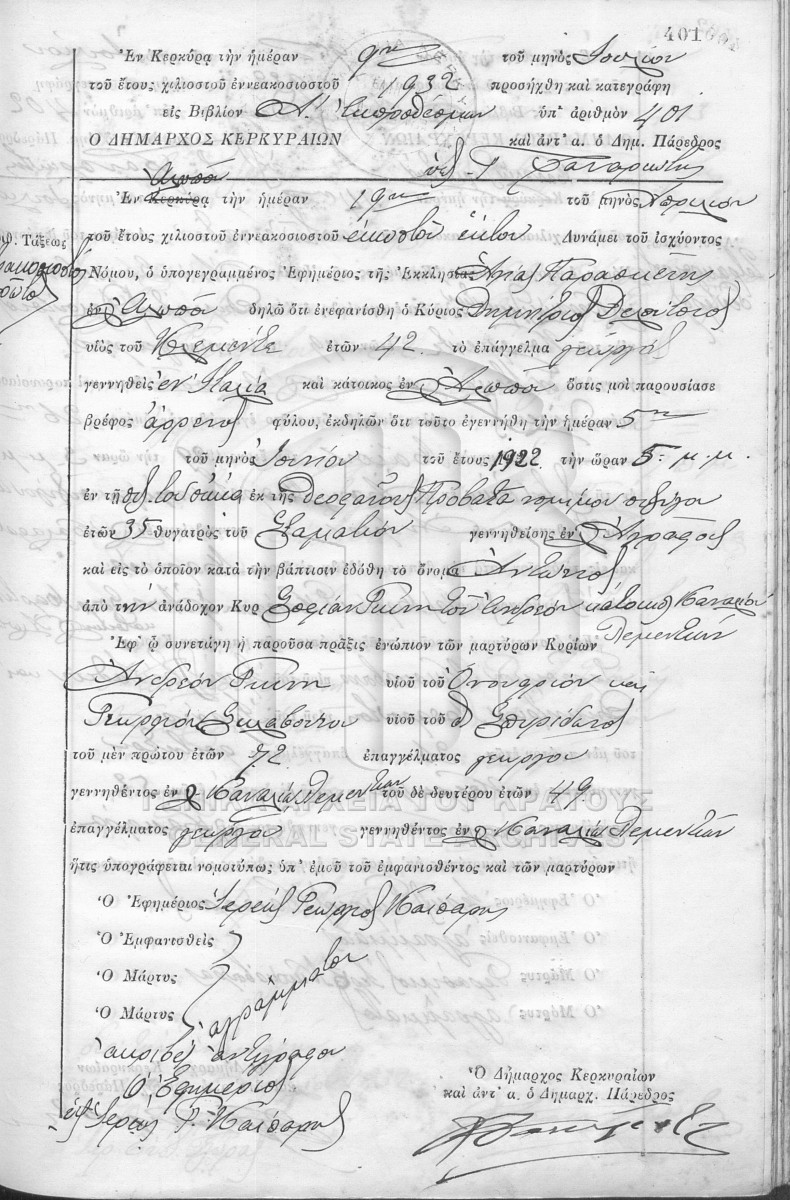 401
Ἐν Κερκύρᾳ τὴν ἡμέραν 9ην τοῦ μηνὸς Ἰουνίου
τοῦ ἔτους χιλιοστοῦ ἐννεακοσιοστοῦ 1932 προσήχθη καὶ κατεγράφη
εἰς Βιβλίον Α. Ἐκπροθέσμων ὑπ' ἀριθμὸν 401
Ὁ ΔΗΜΑΡΧΟΣ ΚΕΡΚΥΡΑΙΩΝ καὶ ἀντ' α. ὁ Δημ. Πάρεδρος
Ἐν Κερκύρᾳ τὴν ἡμέραν 19ην τοῦ μηνὸς Ἀπριλίου
τοῦ ἔτους χιλιοστοῦ ἐννεακοσιοστοῦ εἰκοστοῦ ἕκτου Δυνάμει τοῦ ἰσχύοντος
Φ. Τάξεως
Νόμου, ὁ ὑπογεγραμμένος Ἐφημέριος τῆς Ἐκκλησίας Ἁγίας Παρασκευῆς
ἐν δηλῶ ὅτι ἐνεφανίσθη ὁ Κύριος Δημήτριος
υἱὸς τοῦ ἐτῶν 42 τὸ ἐπάγγελμα γεωργὸς
γεννηθεὶς ἐν Ἰταλίᾳ καὶ κάτοικος ἐν ὅστις μοὶ παρουσίασε
βρέφος ἄρρενος φύλου, ἐκδηλῶν ὅτι τοῦτο ἐγεννήθη τὴν ἡμέραν 5ην
τοῦ μηνὸς Ἰουνίου τοῦ ἔτους 1922 τὴν ὥραν 5 μ.μ.
ἐν τῇ ἐκ τῆς Προβατᾶ νομίμου συζύγου
ἐτῶν 35 θυγατρὸς τοῦ Σταματίου γεννηθείσης ἐν
καὶ εἰς τὸ ὁποῖον κατὰ τὴν βάπτισιν ἐδόθη τὸ ὄνομα Ἀντώνιος
ἀπὸ τὴν ἀνάδοχον Κυρ Σοφίαν Γκίνη τοῦ Ἀνδρέου κάτοικος Καναλίων
Ἐφ' ᾧ συνετάγη ἡ παροῦσα πρᾶξις ἐνώπιον τῶν μαρτύρων Κυρίων
Ἀνδρέου Γκίνη υἱοῦ τοῦ Ὀνουφρίου καὶ
Γεωργίου υἱοῦ τοῦ Σπυρίδωνος
τοῦ μὲν πρώτου ἐτῶν 72 ἐπαγγέλματος γεωργοῦ
γεννηθέντος ἐν τοῦ δὲ δευτέρου ἐτῶν 49
ΓΕΝΙΚΑ ΑΡΧΕΙΑ ΤΟΥ ΚΡΑΤΟΥΣ
ἐπαγγέλματος γεωργοῦ γεννηθέντος ἐν
GENERAL STATE ARCHIVES
ἥτις ὑπογράφεται νομοτύπως ὑπ' ἐμοῦ τοῦ ἐμφανισθέντος καὶ τῶν μαρτύρων
Ὁ Ἐφημέριος Ἱερεὺς Γεώργιος Καίσαρης
Ὁ Ἐμφανισθεὶς
Ὁ Μάρτυς
ἀγράμματοι
Ὁ Μάρτυς
ἀκριβὲς ἀντίγραφον
Ὁ Ἐφημέριος
Ἱερεὺς Γ. Καίσαρης
Ὁ Δήμαρχος Κερκυραίων
καὶ ἀντ' α. ὁ Δημαρχ. Πάρεδρος